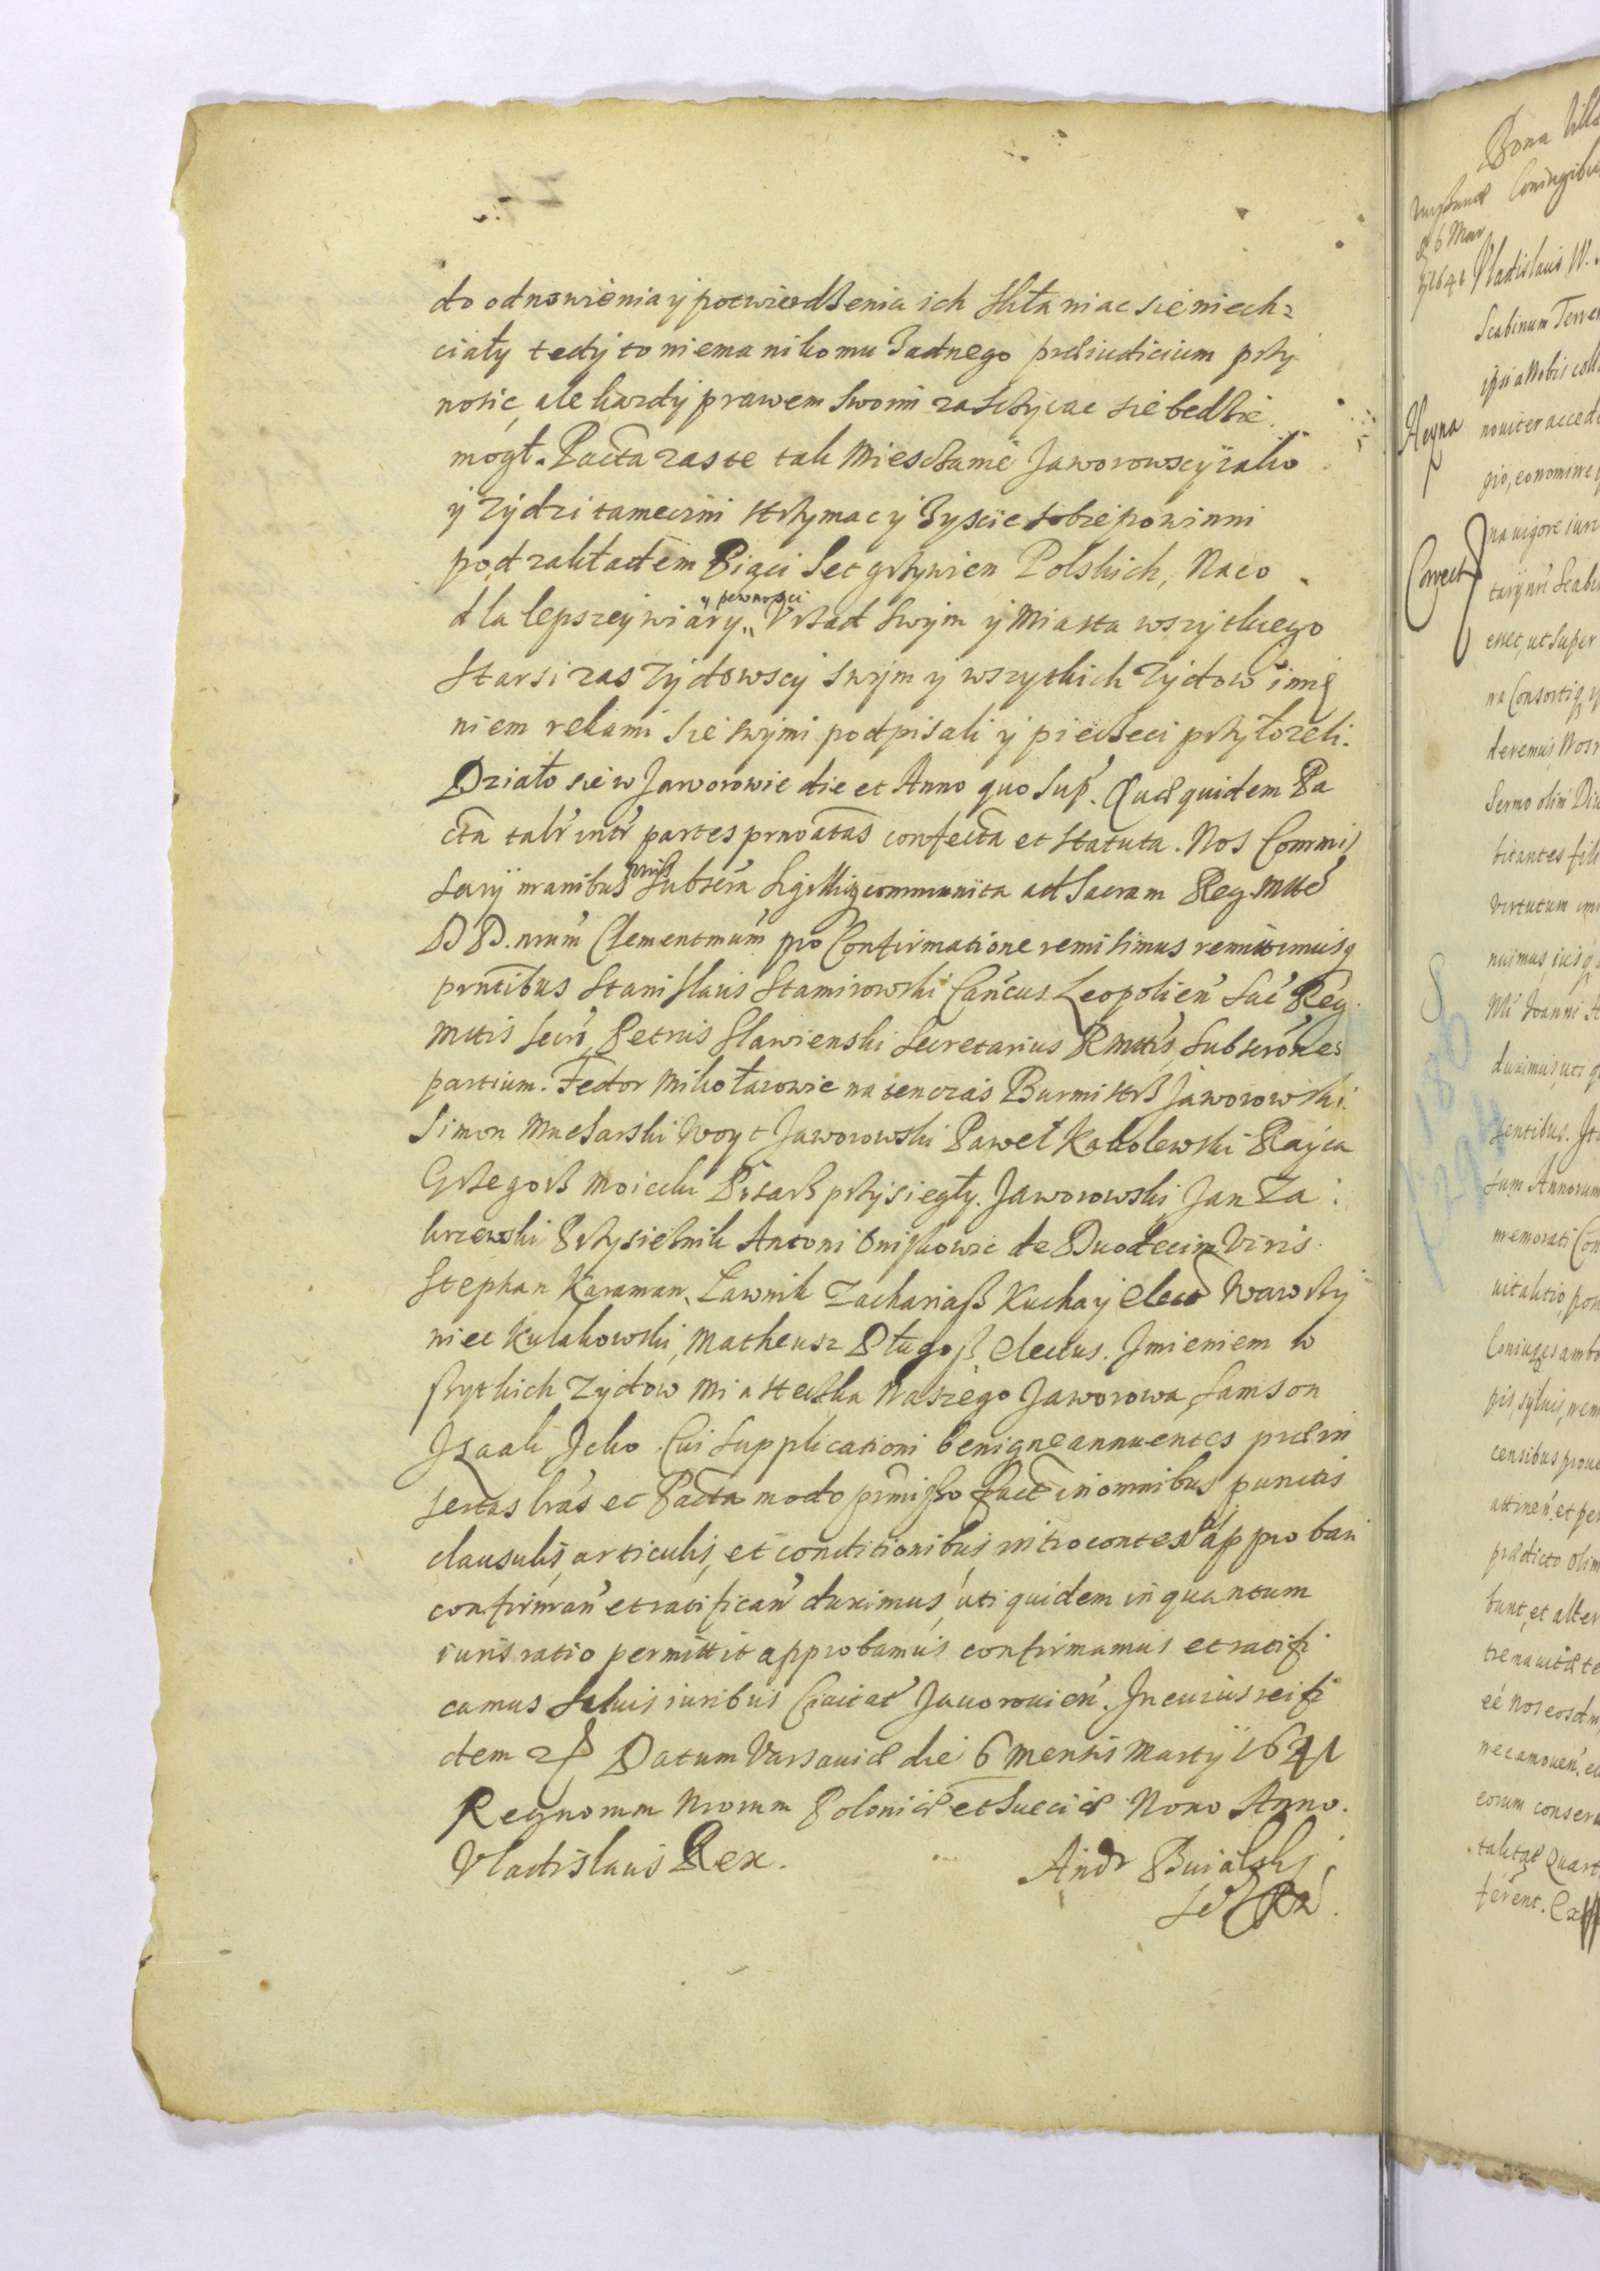 do odnowienia y potwierdzenia ich skłaniac sie niech-
ciały tedy to niema nikomu żadnego præiudicium przy
nosić, ale kazdy prawem swoim zaszczycac sie bedzie
mogł. Pacta zas te tak Miesczanie Jaworowscy iako
y Zydzi tameczni strzymac y zyscic sobie powinni
pod zakładem Piąci set grzywien Polskich, Na co
dla lepszey wiary y pewnosci Vrząd swym y Miasta wszytkiego
Starsi zas Zydowscy swym y wszytkich Zydow imię
niem rekami sie swymi podpisali y pieczeci przyłozeli.
Działo sie w Jaworowie die et Anno quo sup. Quæ quidem Pa
cta talr intr partes prnoatas confecta et statuta. Nos Commis
sarij manibus nris subscra sigillisq communita ad Sacram Reg. Mtte
D D. nrum Clementmum pro Confirmatione remisimus remittimusq
prntibus Stanislaus Stamirowski Cancus Leopolien Sac Reg.
Mttis Secr, Petrus Slawienski Secretarius R Mttis, Subscrones
partium. Fedor Mikołaiowic na tenczas Burmistrz Jaworowski
Simon Muczarski Woyt Jaworowski Paweł Kobolewski Rayca
Grzegorz Moicek Pisarz przysiegły. Jaworowski Jan Za
krzewski Przysieznik Antoni Oniskowic de Duodecim Viris
Stephan Karaman, Ławnik Zachariasz Kuchay elect Wawrzy
niec Kulakowski, Matheusz Długosz, electus. Imieniem w
szytkich Zydow Miasteczka Naszego Jaworowa, Samson
Izaak Icko. Cui supplicationi benigne annuentes præin
sertas lras et Pacta modo prmisso facta in omnibus punctis
clausulis, articulis, et conditionibus introcontentis approban
confirman et ratifican duximus, uti quidem in quantum
iuris ratio permittit approbamus confirmamus et ratifi
camus Saluis iuribus Ciuitat Jauorouien. In cuius rei fi
dem Datum Varsauiæ die 6 Mensis Martij 1641
Regnorum Nrorum Poloniæ et Sueciæ Nono Anno.
Vladislaus Rex. Andr Buialski

Bona Villa
Coniugibus
6 Mar
1641 Vladislaus IV.
Scabinum Terren
ipsi a Nobis coll
Heyna nouiter accede
gio, eo nomine
na uigore iuri
Correct
esset, ut super
na Consortiq
deremus, Nos
Sermo olim Diu
bitantes fili
Virtutum
nuimus, iusq
Joanni
duximus, uti q
sentibus. Ita
sum Annorum
memorati Con
uitalitio, pos
Coniuges ambo
pis, syluis, nem
censibus prou
attinen. et per
prædicto olim
bunt, et alter
tremauitæ te
ee Nos eosdm
nec amouen.
eorum conseru
talitæ Quart
ferent. Ex